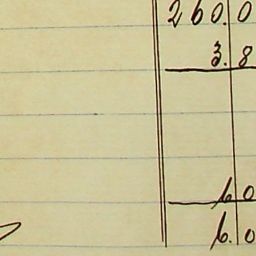 260.0
3.8
6 0
6.0